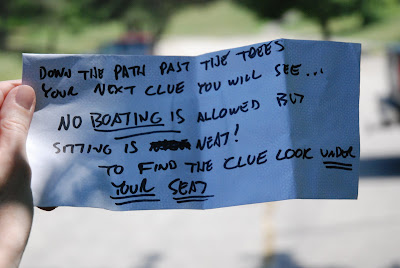 DOWN THE PATH PAST THE TREES
YOUR NEXT CLUE YOU WILL SEE...
NO BOATING IS ALLOWED BUT
SITTING IS NEAT!
TO FIND THE CLUE LOOK UNDER
YOUR SEAT